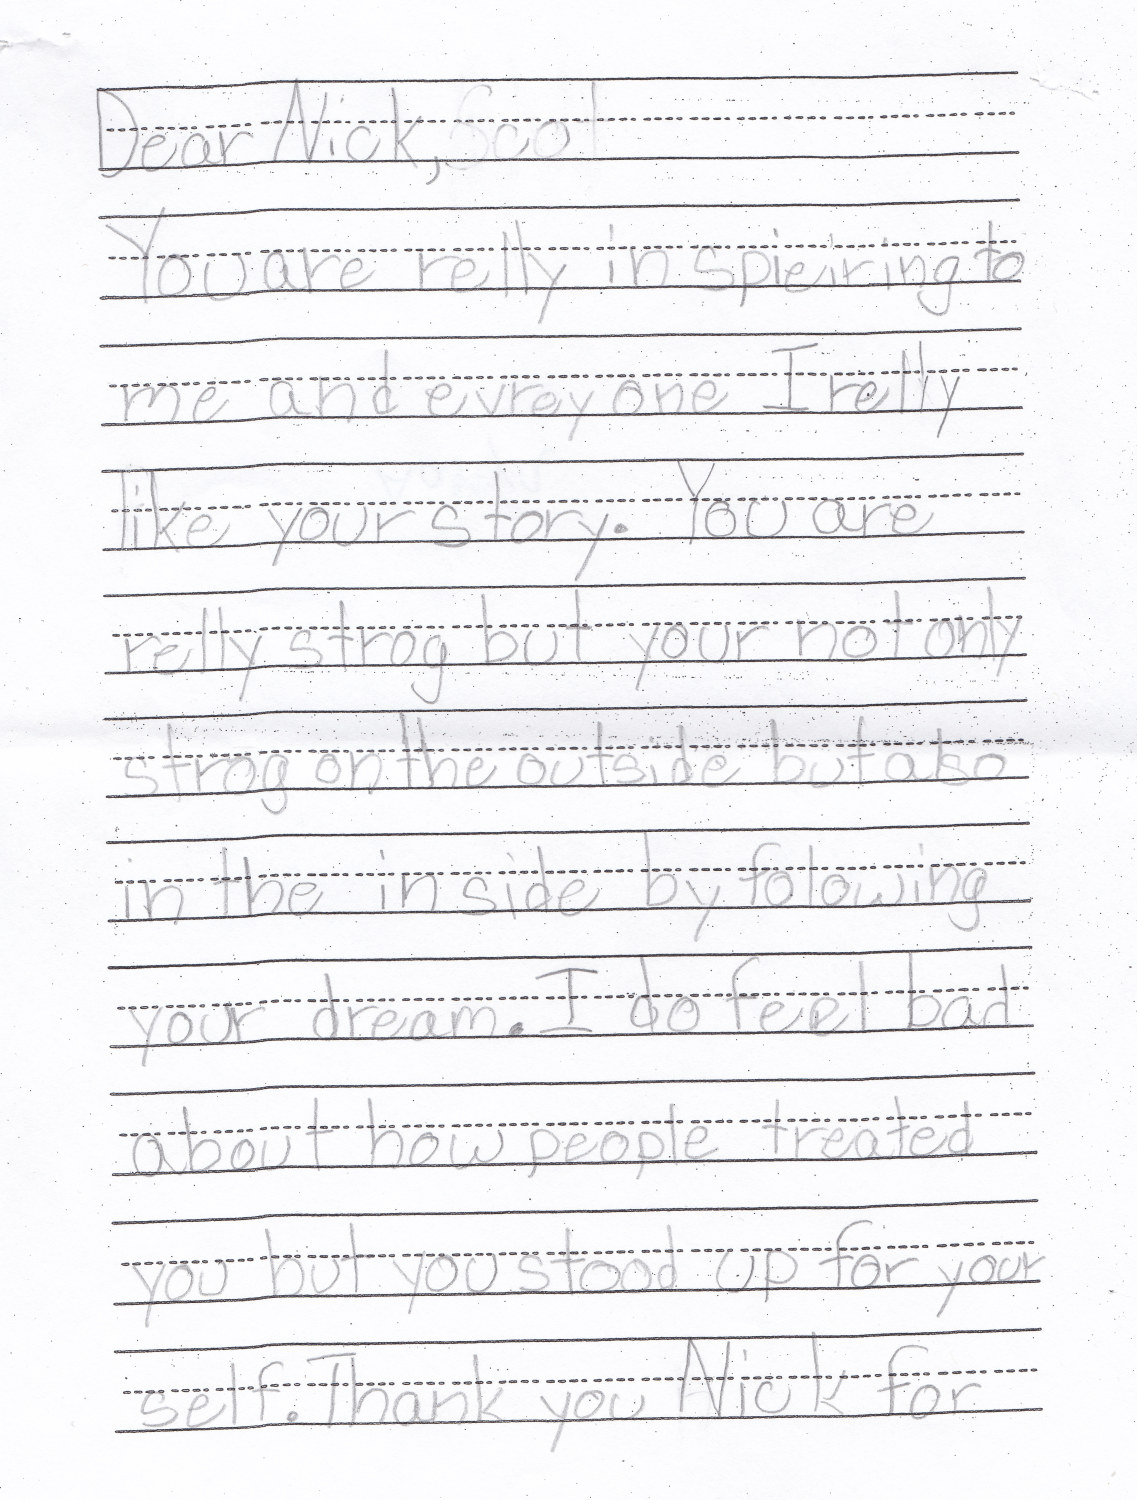 Dear Nick, Scot
You are relly in spieiring to
me and evrey one I relly
like your story. You are
relly strog but your not only
strog on the outside but also
in the in side by folowing
your dream. I do feel bad
about how people treated
you but you stood up for your
self. Thank you Nick for